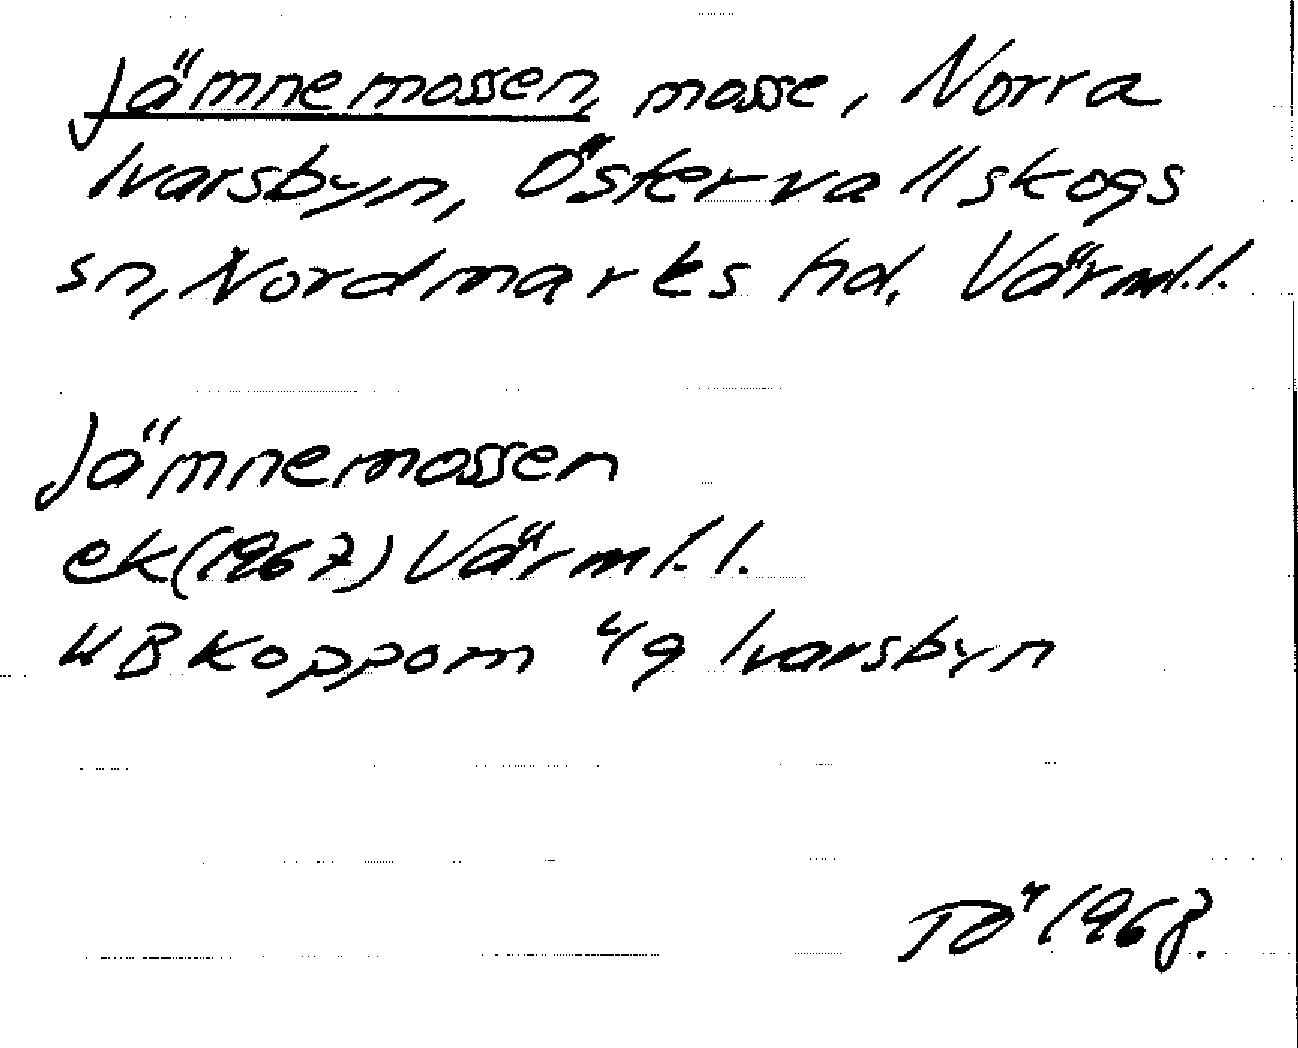 Jämnemossen, mosse, Norra
Ivarsbyn, Östervallskogs
sn, Nordmarks hd. Värml.l.
Jämnemossen
ek(1967) Värml.l.
Koppom Ivarsbyn
Tö 1968.